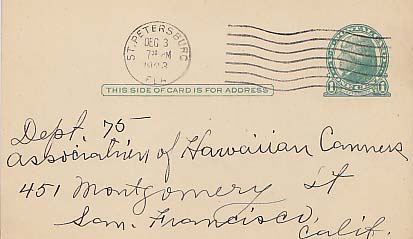 ST. PETERSBURG
DEC 3
FLA.
THIS SIDE OF CARD IS FOR ADDRESS
1 1
Dept. 75
Association of Hawaiian Canners
451 Montgomery St
San. Francisco,
Calif.